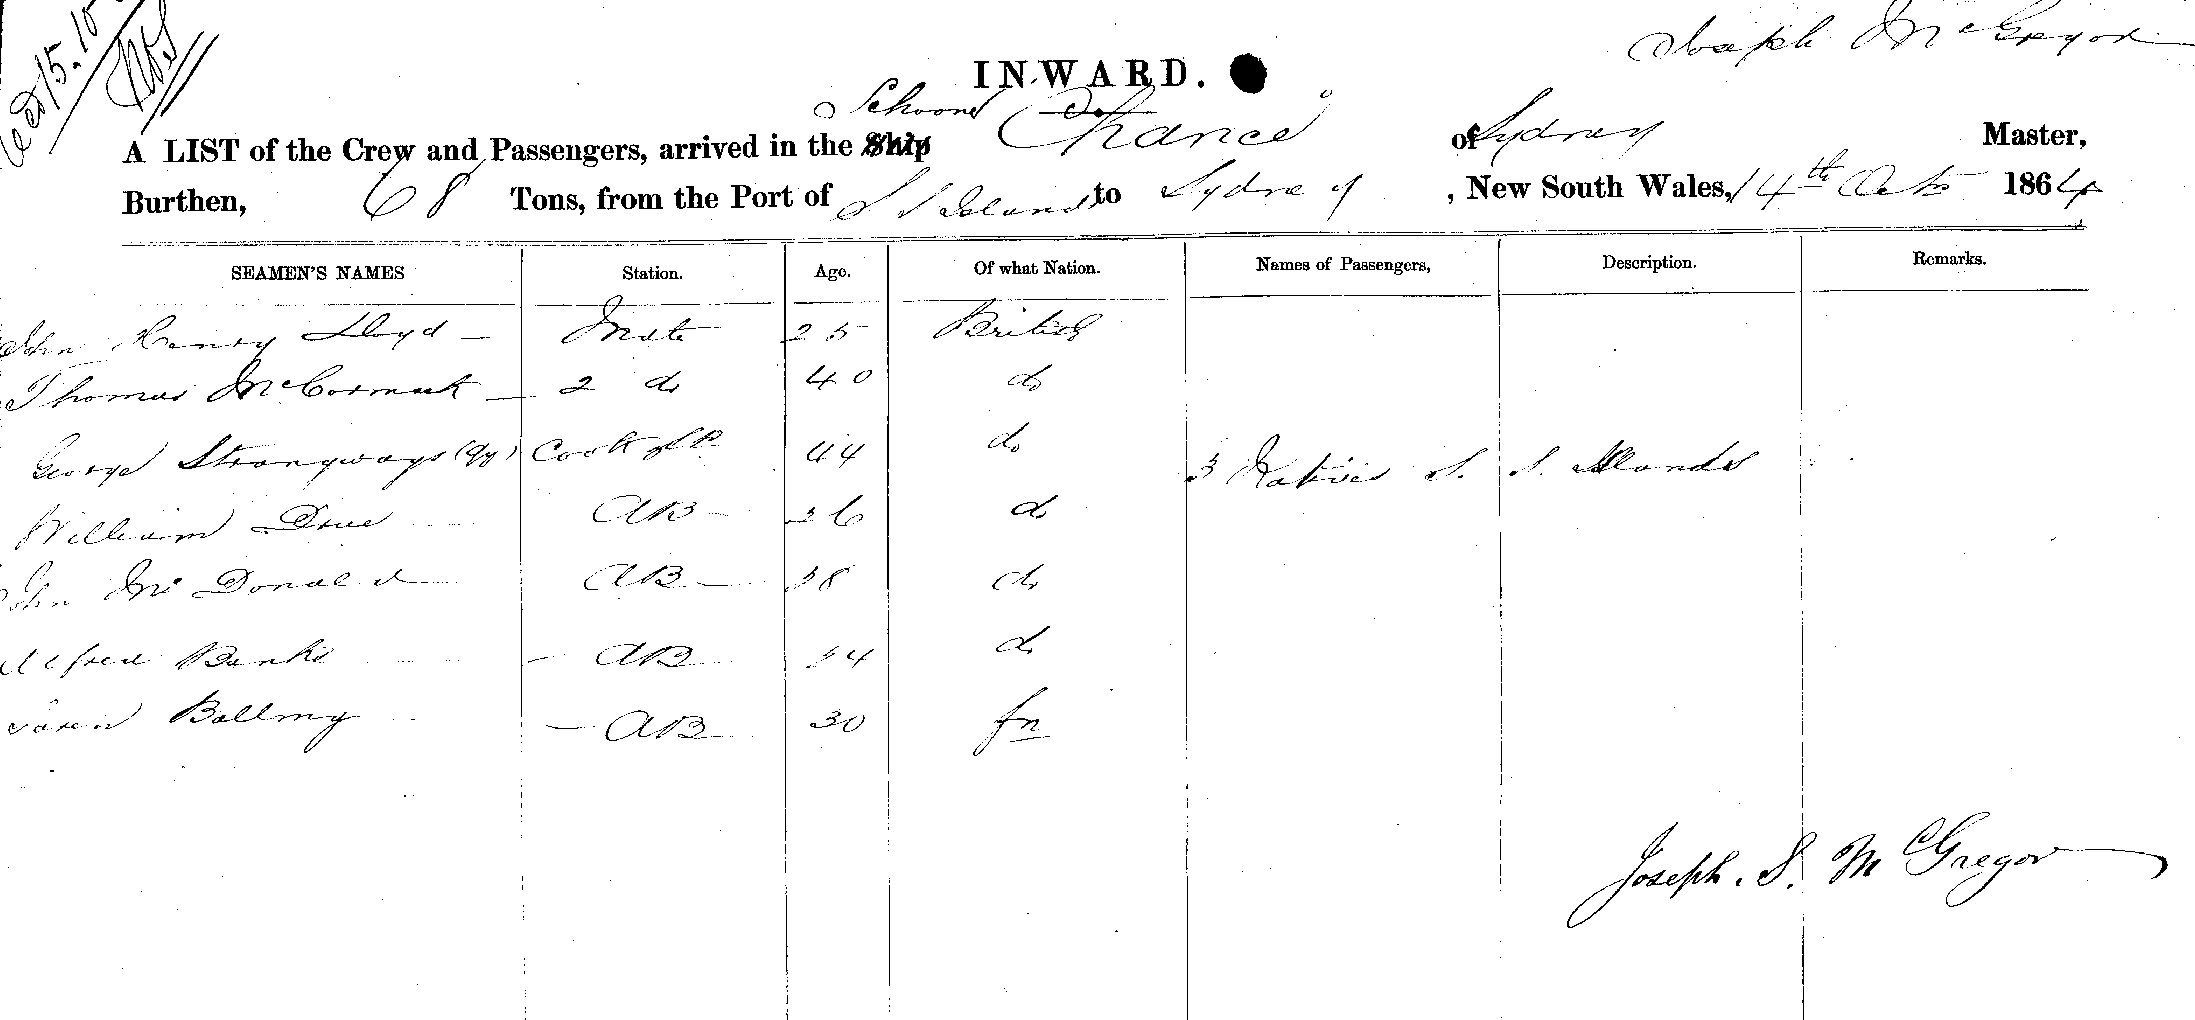 Joseph McGregor
INWARD.
A LIST of the Crew and Passengers, arrived in the Ship Schooner Chance of Sydney Master,
Burthen, 68 Tons, from the Port of S S Islands to Sydney, New South Wales, 14th Oct 1864
SEAMEN'S NAMES Station. Age. Of what Nation. Names of Passengers, Description. Remarks.
John Henry Lloyd Mate 25 British
Thomas McCormack 2 do 40 do
George Strangways Cook 44 do
3 Natives S. S. Islands
William AB 26 do
John McDonald AB 38 do
Alfred Banks AB 34 do
AB 30 fn
Joseph. S. McGregor